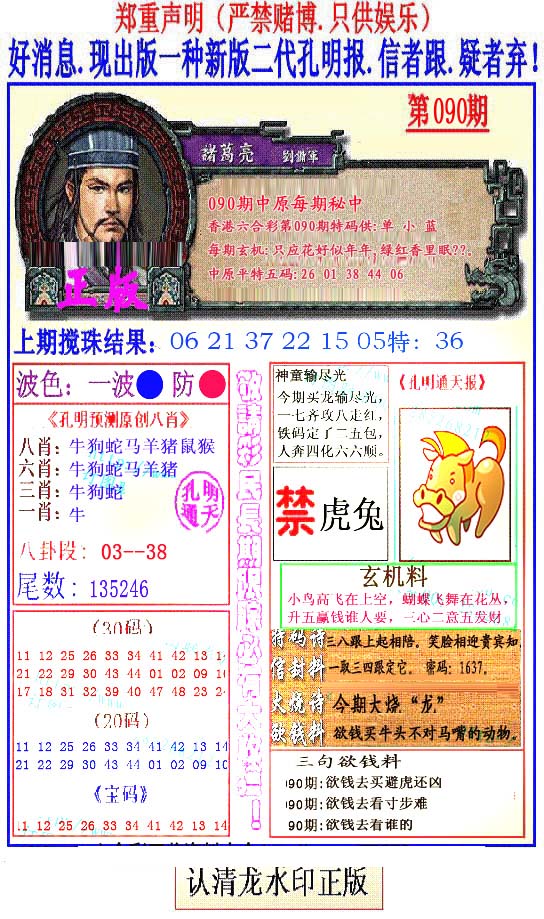 郑重声明（严禁赌博.只供娱乐）
好消息.现出版一种新版二代孔明报.信者跟.疑者弃!
第090期
諸葛亮 劉備軍
090期中原每期秘中
香港六合彩第090期特码供:单 小 蓝
每期玄机:只应花好似年年,绿红香里眠??。
中原平特五码:26 01 38 44 06
正版
上期搅珠结果：06 21 37 22 15 05特：36
波色：一波 防
《孔明预测原创八肖》
八肖：牛狗蛇马羊猪鼠猴
六肖：牛狗蛇马羊猪
三肖：牛狗蛇
一肖：牛
孔明
通天
八卦段：03--38
尾数：135246
(30码)
11 12 25 26 33 34 41 42 13 14
21 22 29 30 43 44 01 02 09 10
17 18 31 32 39 40 47 48 23 24
(20码)
11 12 25 26 33 34 41 42 13 14
21 22 29 30 43 44 01 02 09 10
《宝码》
11 12 25 26 33 34 41 42 13 14
神童输尽光
今期买龙输尽光，
一七齐攻八走红，
铁码定了二五包，
人奔四化六六顺。
《孔明通天报》
禁 虎兔
玄机料
小鸟高飞在上空，蝴蝶飞舞在花丛，
升五赢钱谁人要，三心二意五发财
特码诗 三八跟上起相陪。笑脸相迎贵宾知,
信封料 一取三四跟定它。 密码：1637。
火烧诗 今期大烧“龙”
欲钱料 欲钱买牛头不对马嘴的动物。
三句欲钱料
090期:欲钱去买避虎还凶
090期:欲钱去看寸步难
90期:欲钱去看谁的
认清龙水印正版